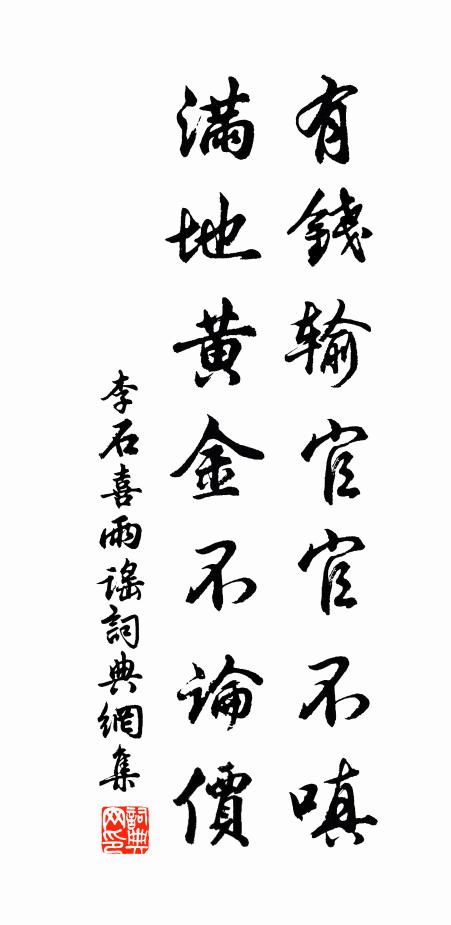 有錢輸官官不嗔
滿地黃金不論價
李石喜雨謠詞典網集
詞典网印